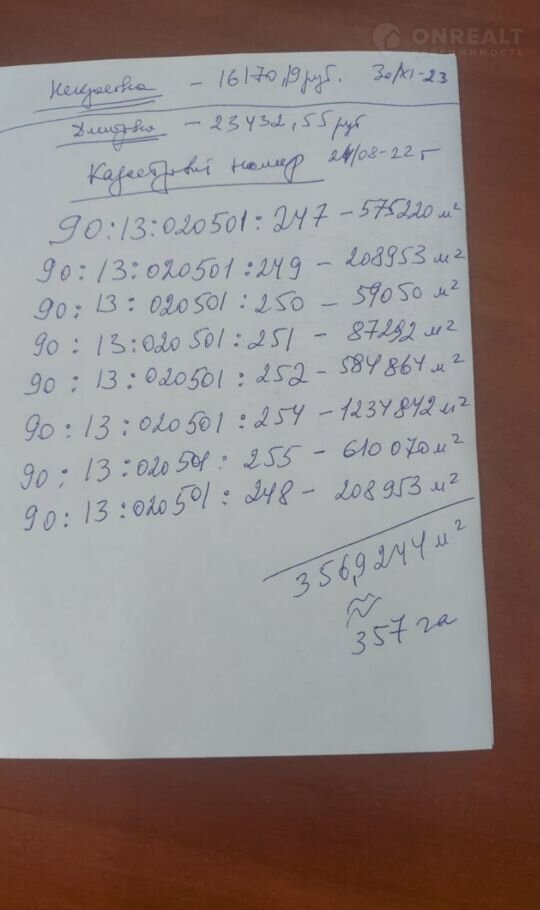 ONREALT
НЕДВИЖИМОСТЬ
Некрасовка - 16170,19 руб. 30/XI-23
Дмитровка - 23432,55 руб
Кадастровый номер 24/08-22 г
90:13:020501:247 - 575220 м²
90:13:020501:249 - 208953 м²
90:13:020501:250 - 59050 м²
90:13:020501:251 - 87292 м²
90:13:020501:252 - 584864 м²
90:13:020501:254 - 1234842 м²
90:13:020501:255 - 610070 м²
90:13:020501:248 - 208953 м²
356,9244 м²
≈
357 га